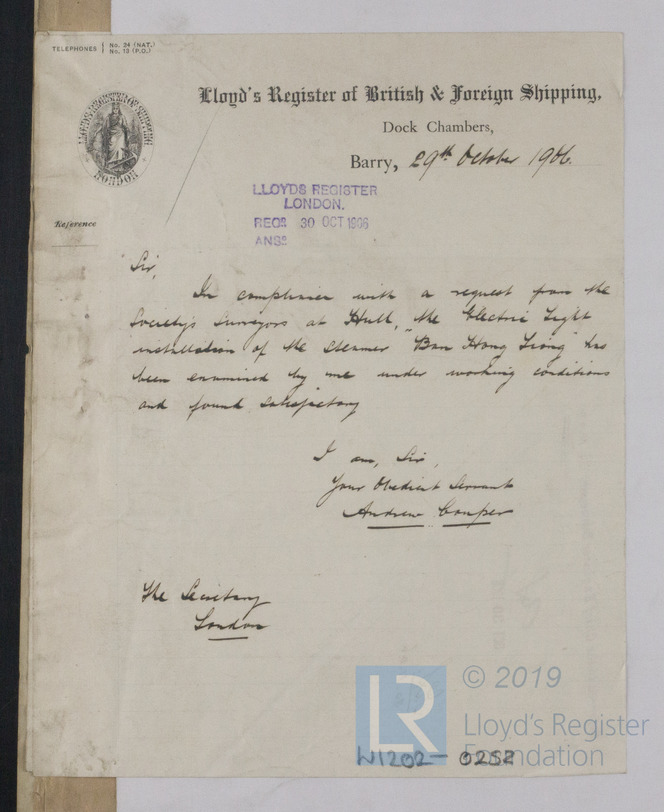 TELEPHONES { No. 34 (NAT.)
No. 13 (P.O.)
Lloyd's Register of British & Foreign Shipping,
Dock Chambers,
Barry, 29th October 1906.
LLOYD'S REGISTER OF SHIPPING
LONDON
LLOYDS REGISTER
LONDON.
RECD. 30 OCT 1906
ANSD.
Reference
Sir,
In compliance with a request from the
Society's Surveyors at Hull, the Electric Light
installation of the steamer "Ban Hong Liong" has
been examined by me under working conditions
and found satisfactory
I am, Sir,
Your Obedient Servant
Andrew Couper
The Secretary
London
LR
© 2019
Lloyd's Register
Foundation
W1202-0252